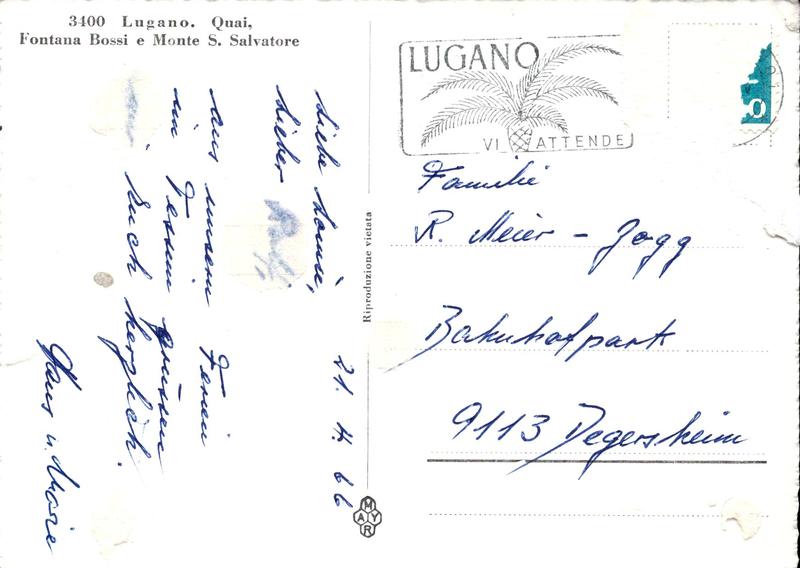 3400 Lugano. Quai,
Fontana Bossi e Monte S. Salvatore
LUGANO
VI ATTENDE
0
Riproduzione vietata
MAYR
21. 4. 66
Liebe Louise,
Lieber
aus unsern Ferien
im Tessin grüssen
Euch herzlich.
Hans u. Marie
Familie
R. Meier - Jogg
Bahnhofpark
9113 Degersheim